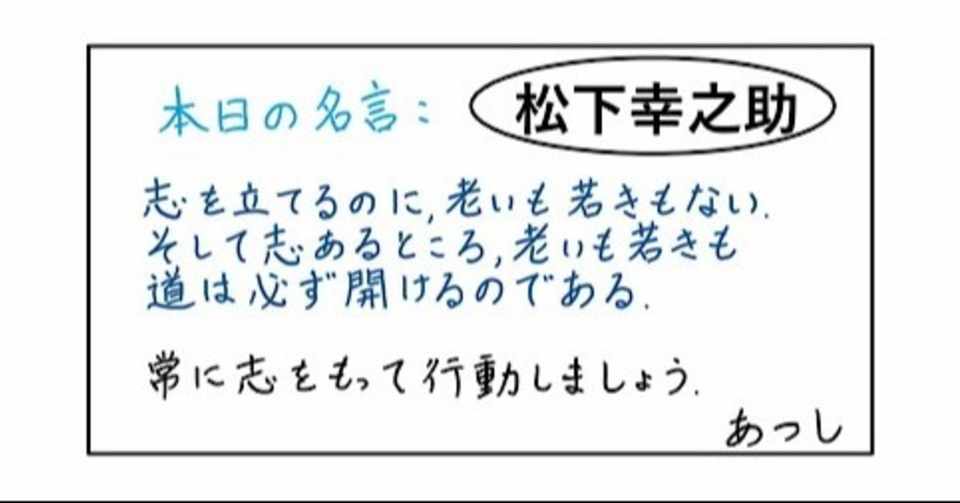 本日の名言: 松下幸之助
志を立てるのに,老いも若きもない.
そして志あるところ,老いも若きも
道は必ず開けるのである.
常に志をもって行動しましょう.
あっし